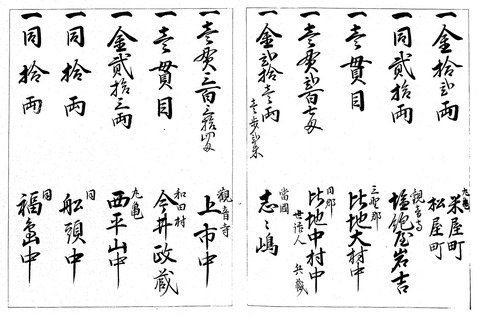 一金拾弐両 丸亀 米屋町 松屋町
一同弐拾両 観音寺 塩飽屋岩吉
一壱貫目 三野郡 比地大村中
一壱貫弐百七匁 同郡 比地中村中 世話人 兵蔵
一金弐拾壱両 壱歩弐朱 當國 志々嶋
一壱貫三百三拾四匁 観音寺 上市中
一壱貫目 和田村 今井政蔵
一金貳拾三両 丸亀 西平山中
一同拾両 同 船頭中
一同拾両 同 福島中